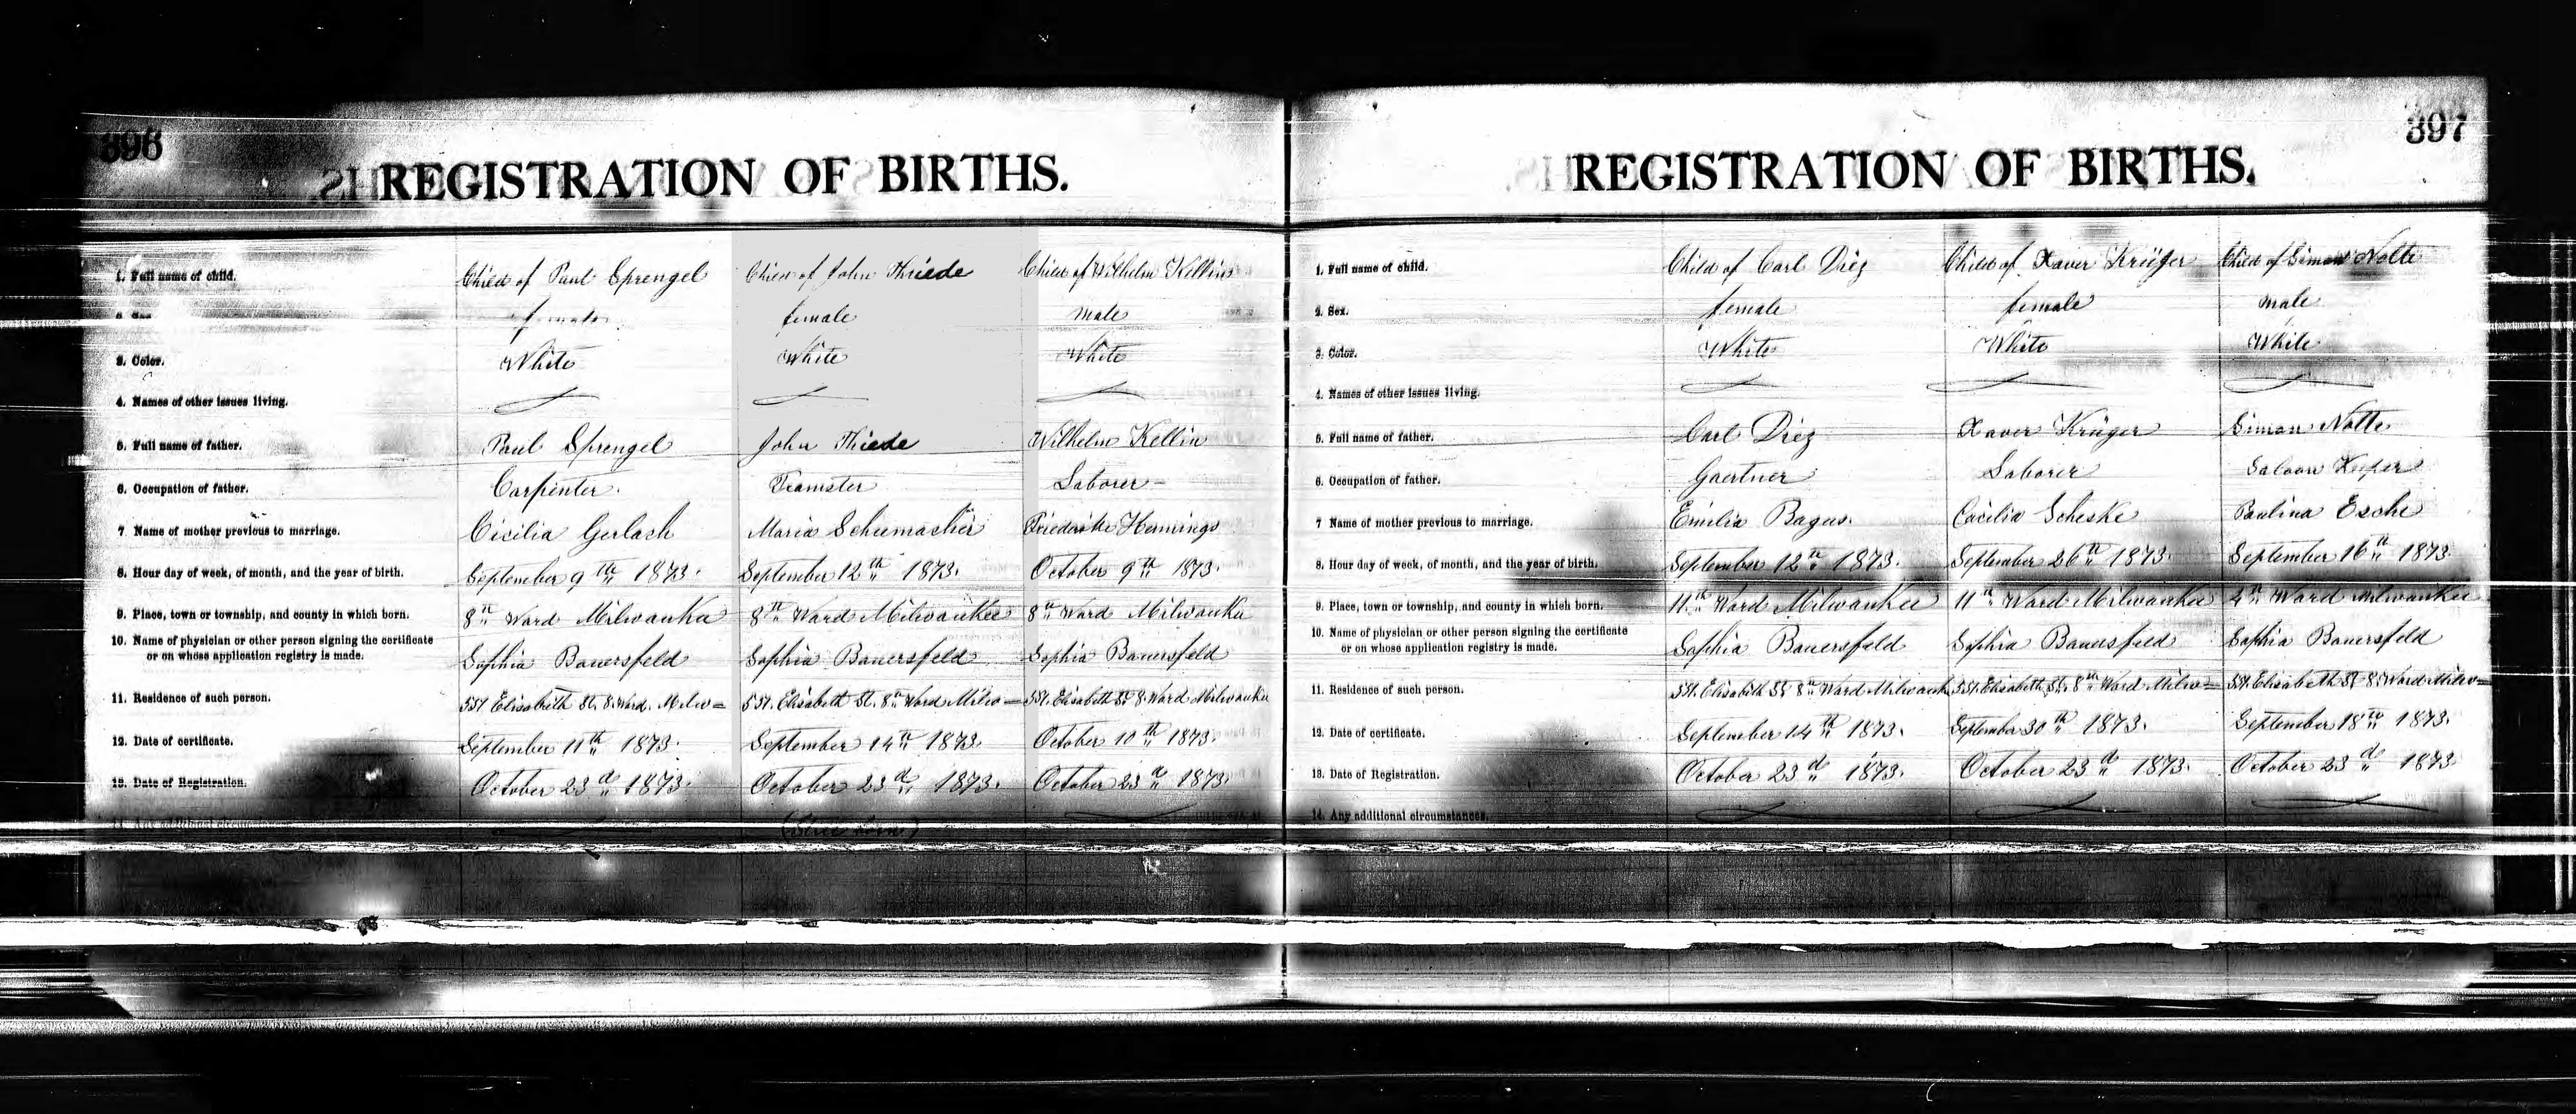 396
REGISTRATION OF BIRTHS.
1. Full name of child. Child of Paul Sprengel Child of John Thiede Child of Wilhelm Kellin
female female male
3. Color. White White White
4. Names of other issues living.
5. Full name of father. Paul Sprengel John Thiede Wilhelm Kellin
6. Occupation of father. Carpenter. Teamster Laborer
7 Name of mother previous to marriage. Cicilia Gerlach Maria Schumacher Friederike Hennings
8. Hour day of week, of month, and the year of birth. September 9th 1873. September 12th 1873. October 9th 1873.
9. Place, town or township, and county in which born. 8th Ward Milwaukee 8th Ward Milwaukee 8th Ward Milwaukee
10. Name of physician or other person signing the certificate
or on whose application registry is made. Sophia Bauersfeld Sophia Bauersfeld Sophia Bauersfeld
11. Residence of such person. 551 Elisabeth St. 8. Ward. Milw= 551. Elisabeth St. 8th Ward Milw= 551. Elisabeth St 8. Ward Milwaukee
12. Date of certificate. September 11th 1873. September 14th 1873. October 10th 1873.
13. Date of Registration. October 23d 1873. October 23d 1873. October 23d 1873.
14. Any additional circumstances.
397
REGISTRATION OF BIRTHS.
1. Full name of child. Child of Carl Diez Child of Xaver Krüger Child of Simon Nolte
2. Sex. female female male
3. Color. White White White
4. Names of other issues living.
5. Full name of father. Carl Diez Xaver Krüger Simon Nolte
6. Occupation of father. Gaertner Laborer Saloon Keeper
7 Name of mother previous to marriage. Emilia Bagus. Cacilia Scheske Paulina Esche
8. Hour day of week, of month, and the year of birth. September 12th 1873. September 26th 1873. September 16th 1873.
9. Place, town or township, and county in which born. 11th Ward Milwaukee 11th Ward Milwaukee 4th Ward Milwaukee
10. Name of physician or other person signing the certificate
or on whose application registry is made. Sophia Bauersfeld Sophia Bauersfeld Sophia Bauersfeld
11. Residence of such person. 551. Elisabeth St. 8th Ward Milwaukee 551. Elisabeth St. 8th Ward Milw= 551. Elisabeth St 8. Ward Milw=
12. Date of certificate. September 14th 1873. September 30th 1873. September 18th 1873.
13. Date of Registration. October 23d 1873. October 23d 1873. October 23d 1873
14. Any additional circumstances.